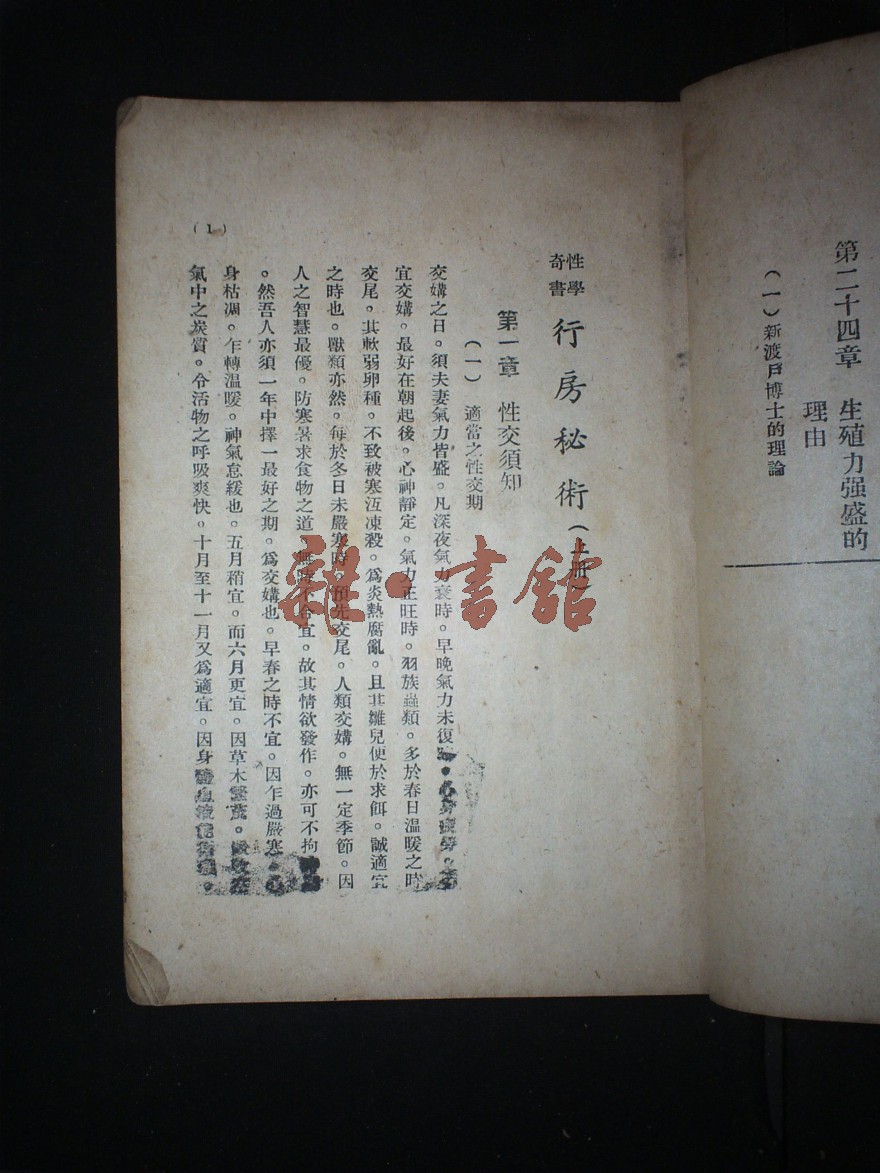 第二十四章　生殖力强盛的
理由
（一）新渡戶博士的理論
性學
奇書
行房秘術（上册）
第一章　性交須知
（一）適當之性交期
交媾之日。須夫妻氣力皆盛。凡深夜氣力衰時。早晚氣力未復
宜交媾。最好在朝起後。心神靜定。氣力正旺時。羽族蟲類。多於春日温暖之時
交尾。其軟弱卵種。不致被寒沍凍殺。爲炎熱腐亂。且其雛兒便於求餌。誠適宜
之時也。獸類亦然。每於冬日未嚴寒時。預先交尾。人類交媾。無一定季節。因
人之智慧最優。防寒暑求食物之道。無時不合宜。故其情欲發作。亦可不拘
。然吾人亦須一年中擇一最好之期。爲交媾也。早春之時不宜。因乍過嚴寒
身枯凋。乍轉温暖。神氣怠緩也。五月稍宜。而六月更宜。因草木繁茂。
氣中之炭質。令活物之呼吸爽快。十月至十一月又爲適宜。因身
（1）
雜·書館